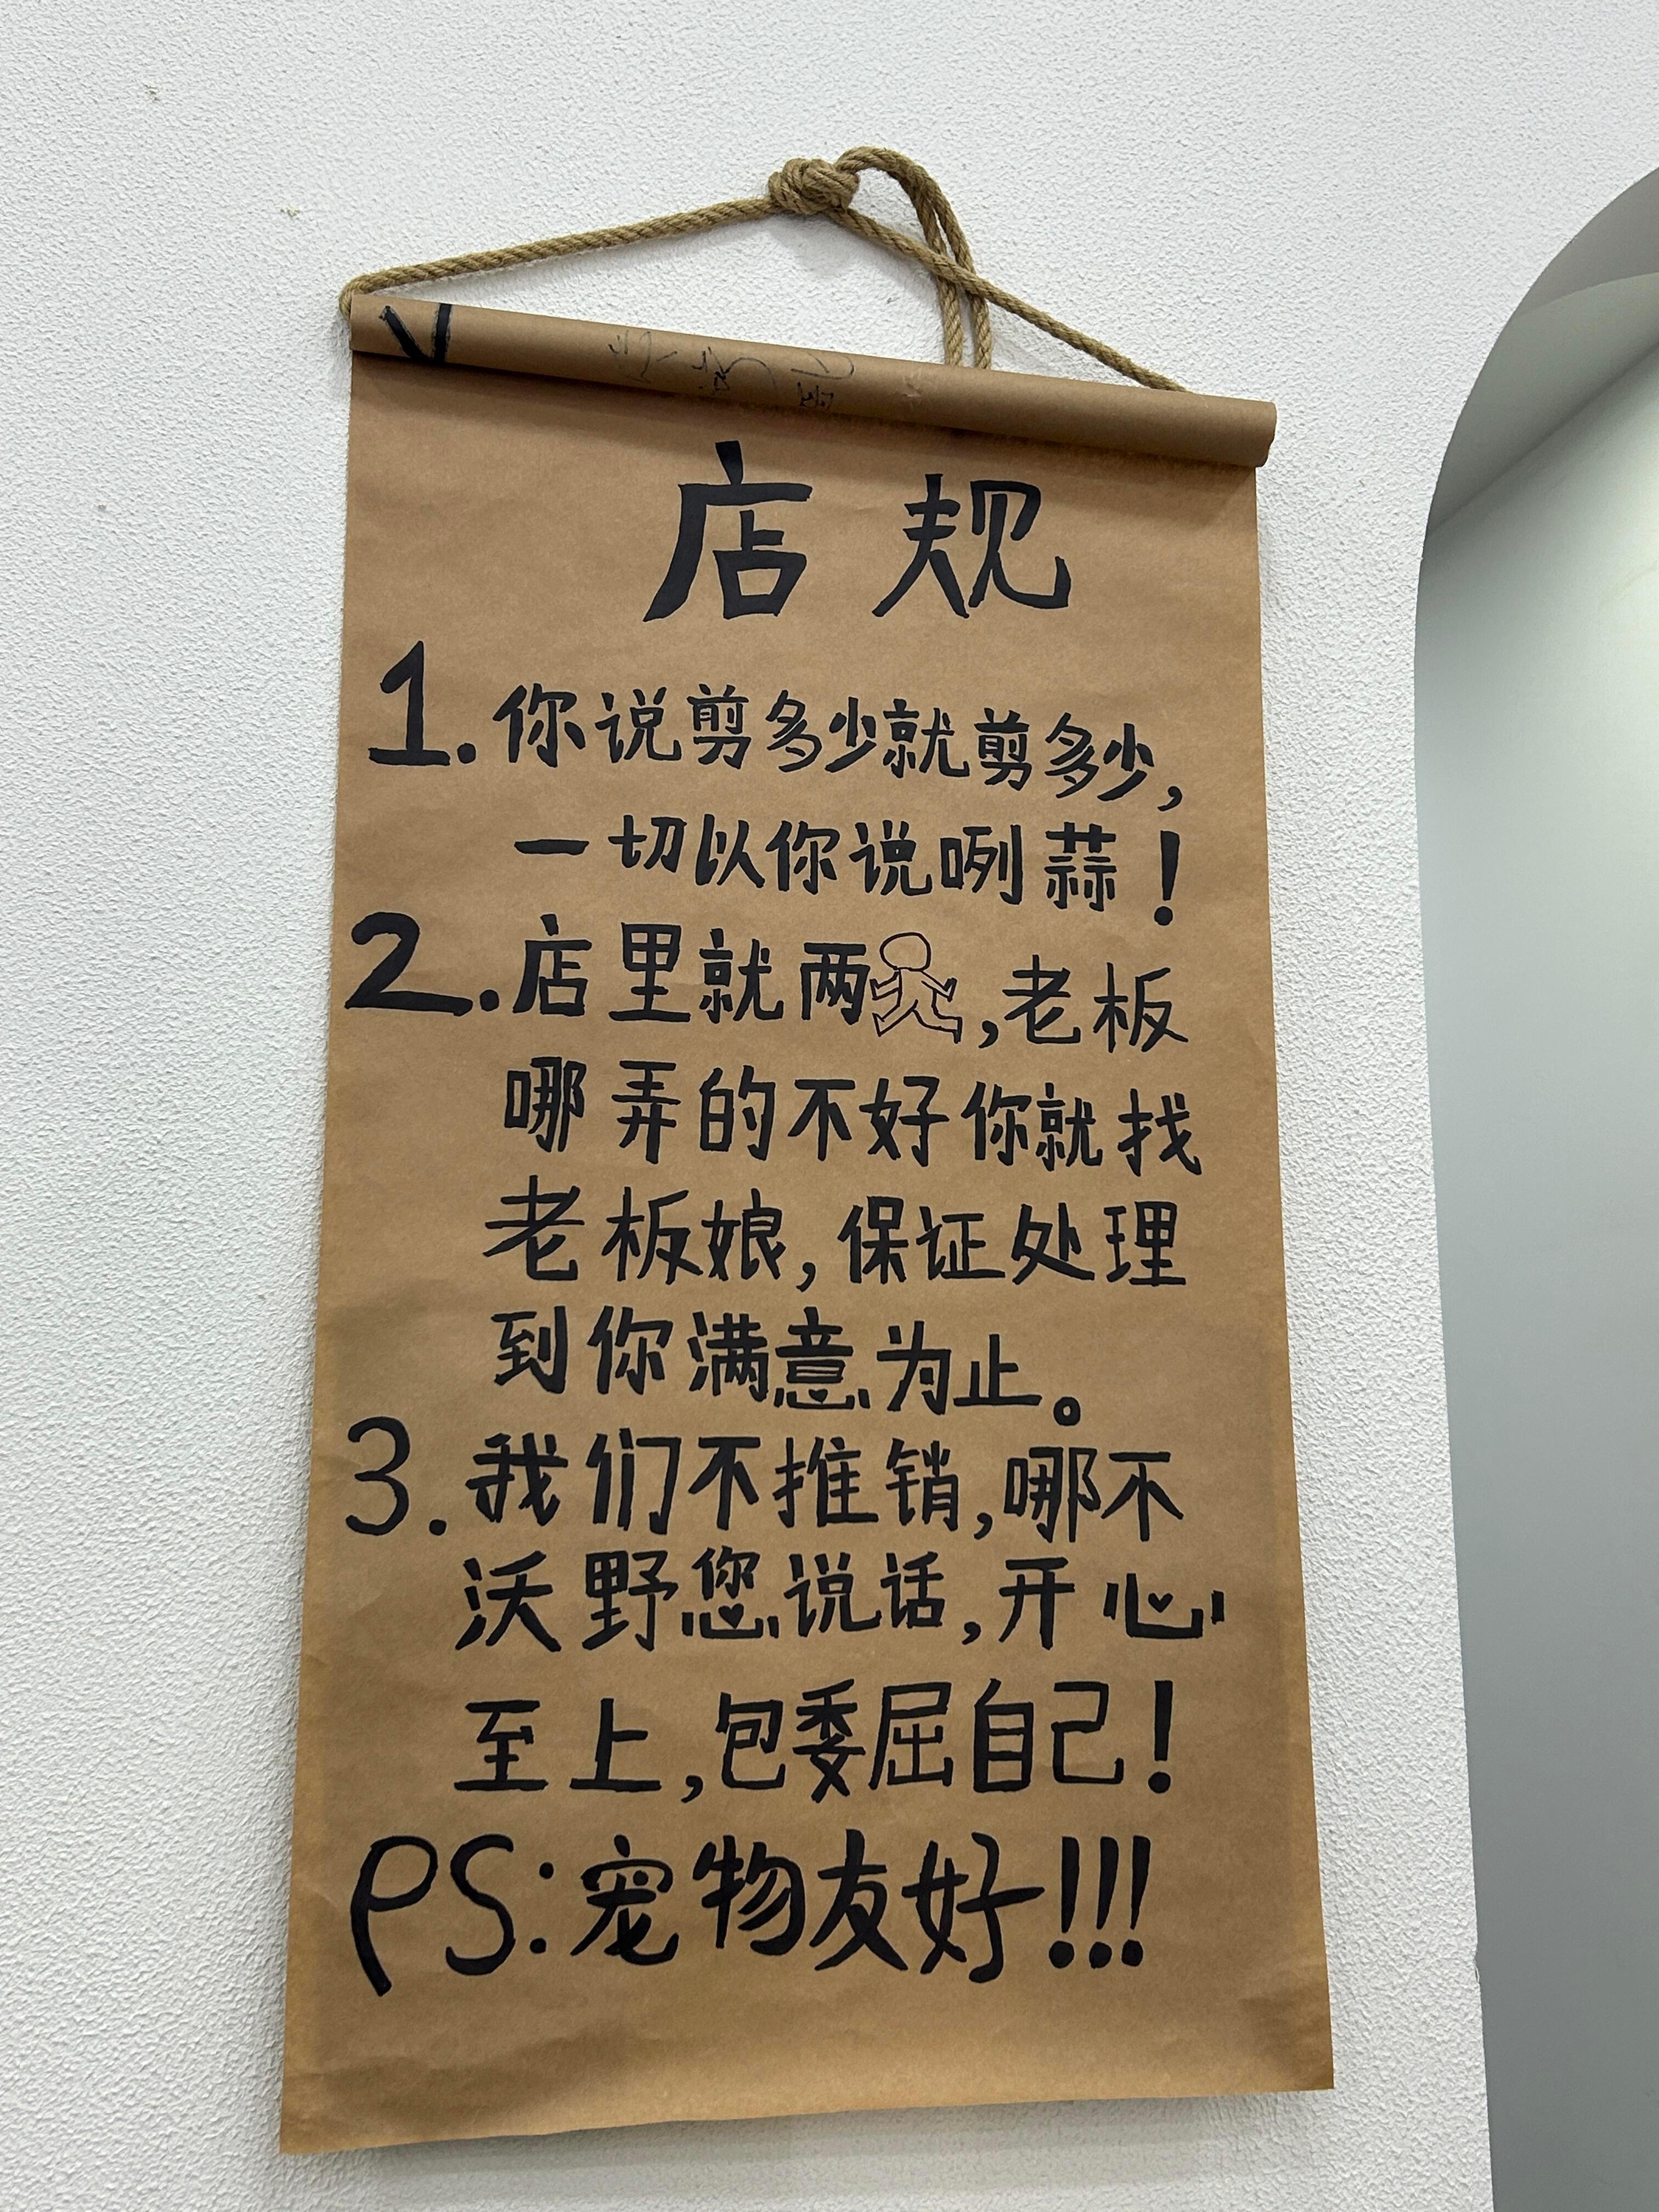 店规
1.你说剪多少就剪多少,
一切以你说咧蒜!
2.店里就两,老板
哪弄的不好你就找
老板娘,保证处理
到你满意为止。
3.我们不推销,哪不
沃野您说话,开心
至上,包委屈自己!
PS:宠物友好!!!